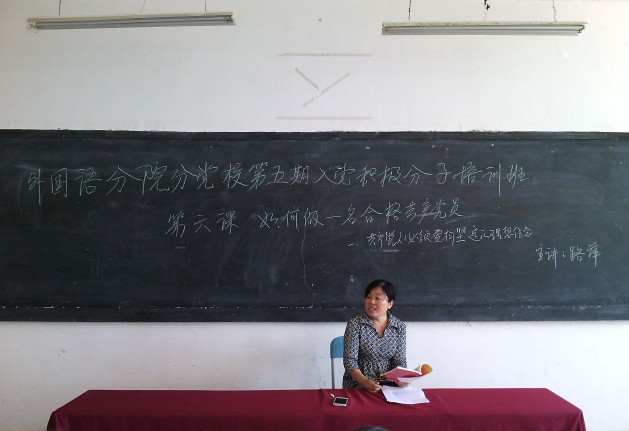 外国语分院分党校第五期入党积极分子培训班
第六课 如何做一名合格共产党员
一、共产党人必须要树坚定的理想信念
主讲：路萍